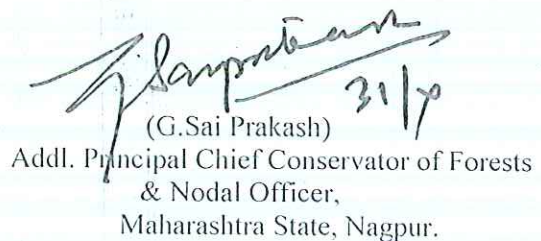 31/x
(G.Sai Prakash)
Addl. Principal Chief Conservator of Forests
& Nodal Officer,
Maharashtra State, Nagpur.